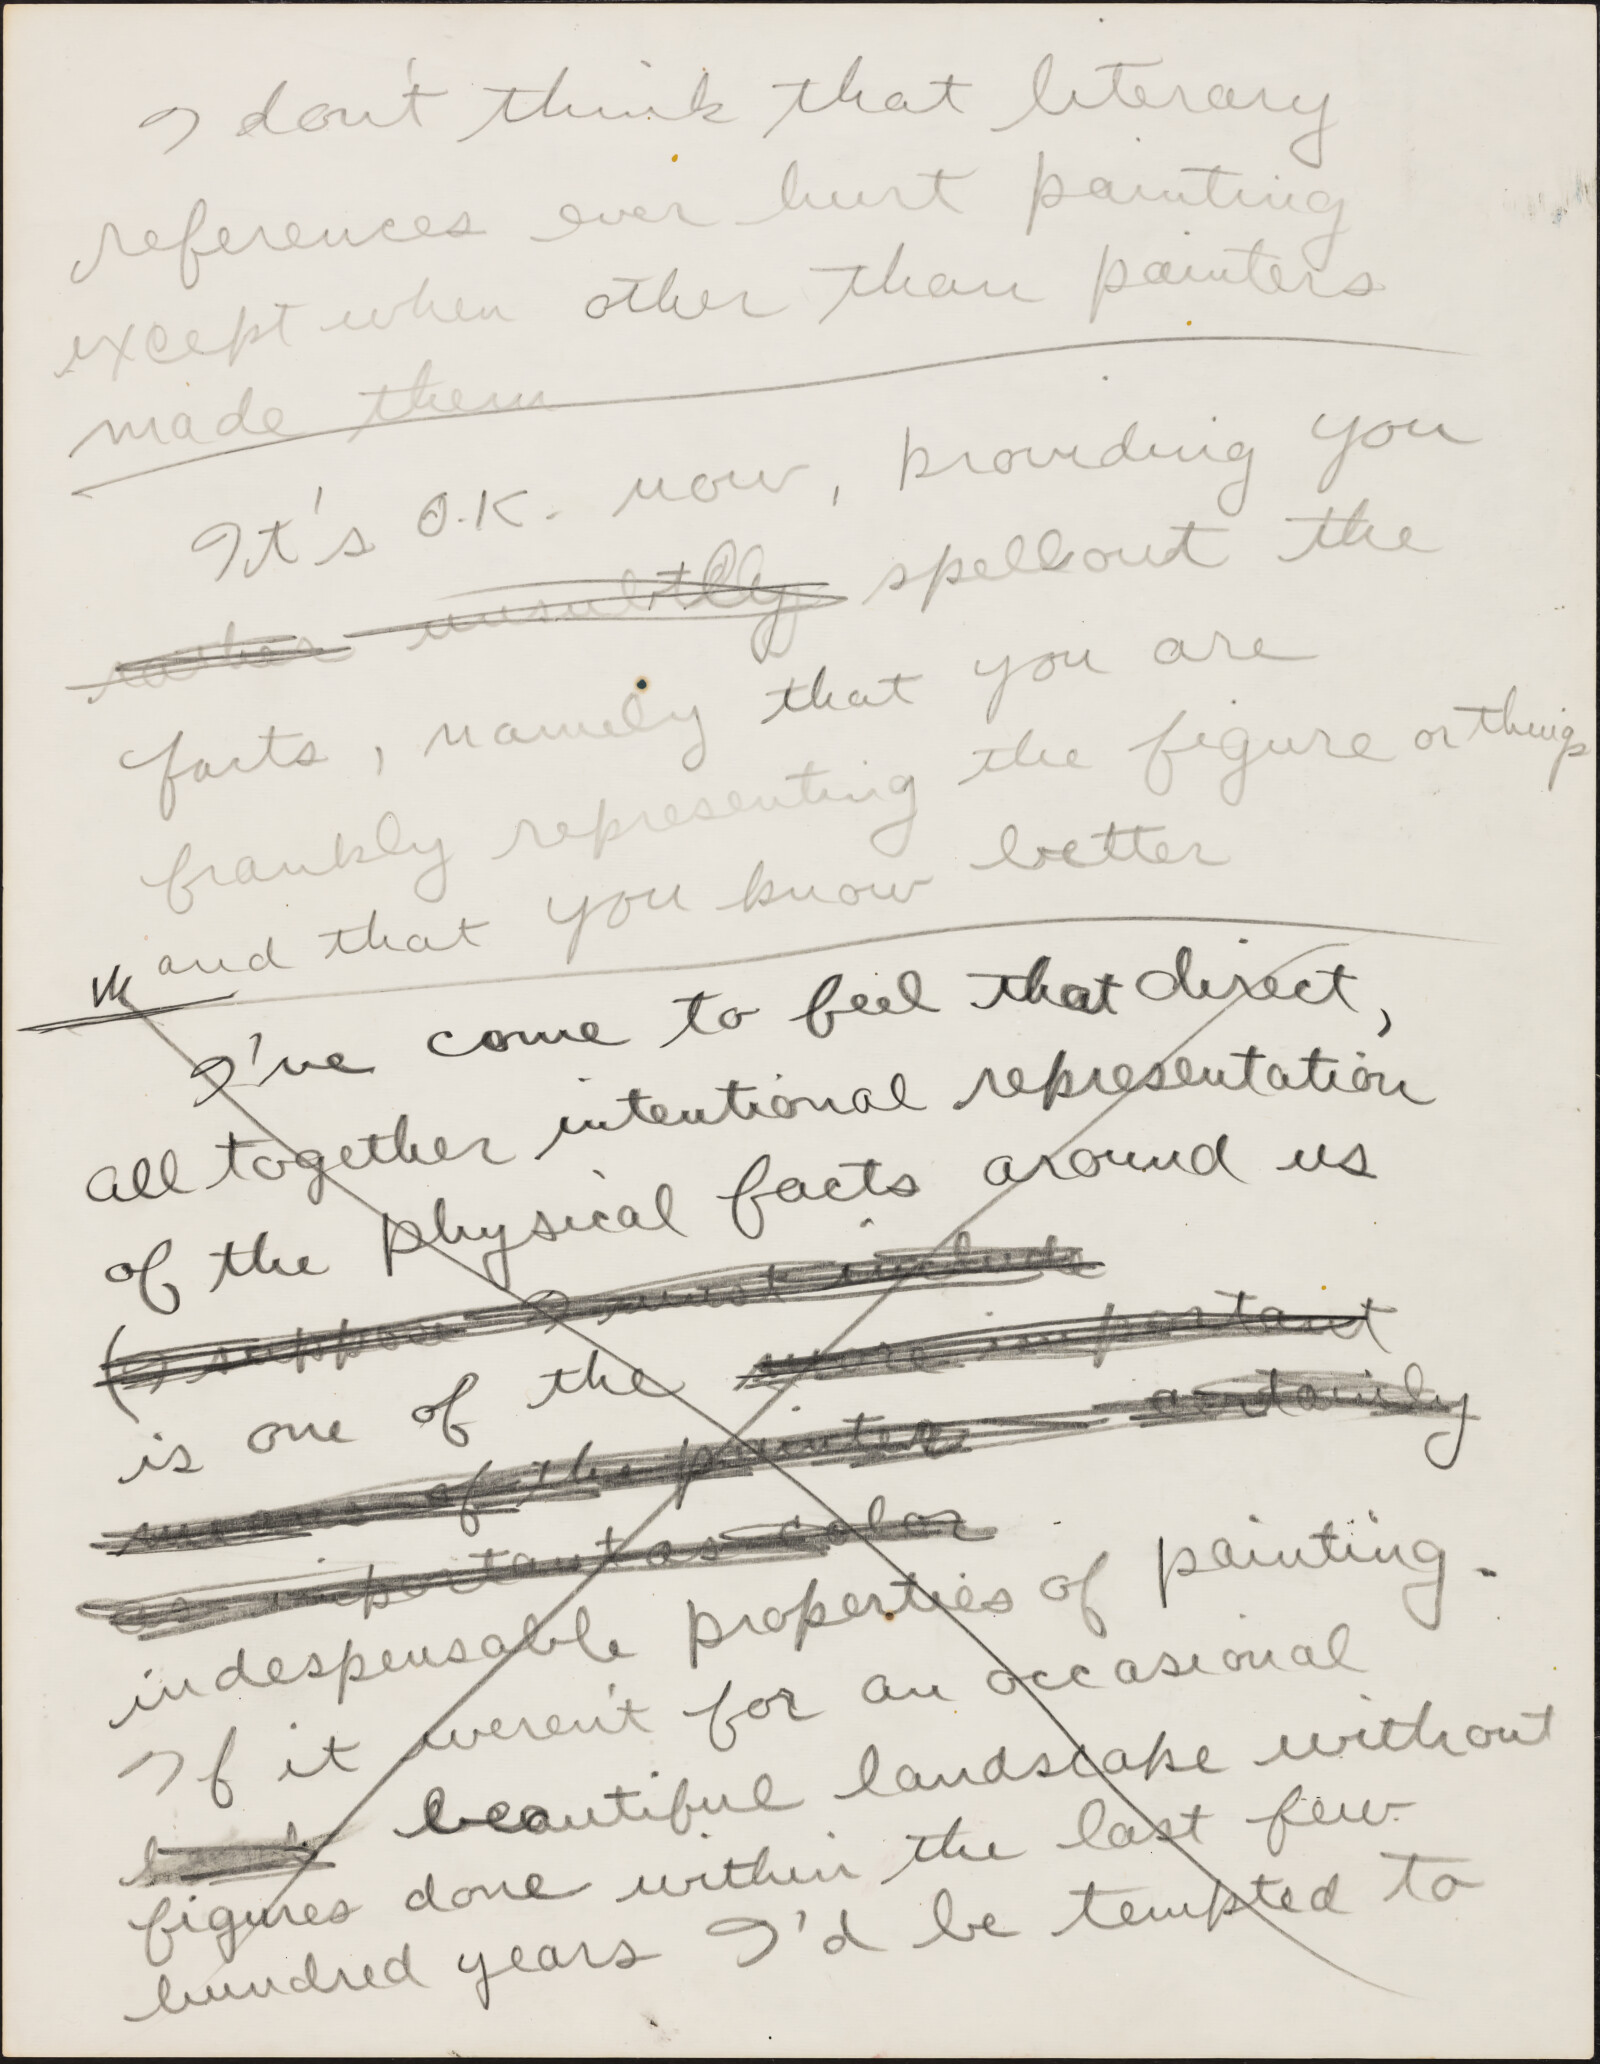 I don't think that literary
references ever hurt painting
except when other than painters
made them
It's O.K. now, providing you
rather unsubtlly spell out the
facts, namely that you are
frankly representing the figure or things
and that you know better
I've come to feel that direct,
all together intentional representation
of the physical facts around us
(I suppose I must include
is one of the more important
means of the painter certainly
as important as color
indespensable properties of painting.
If it weren't for an occasional
beautiful landscape without
figures done within the last few
hundred years I'd be tempted to